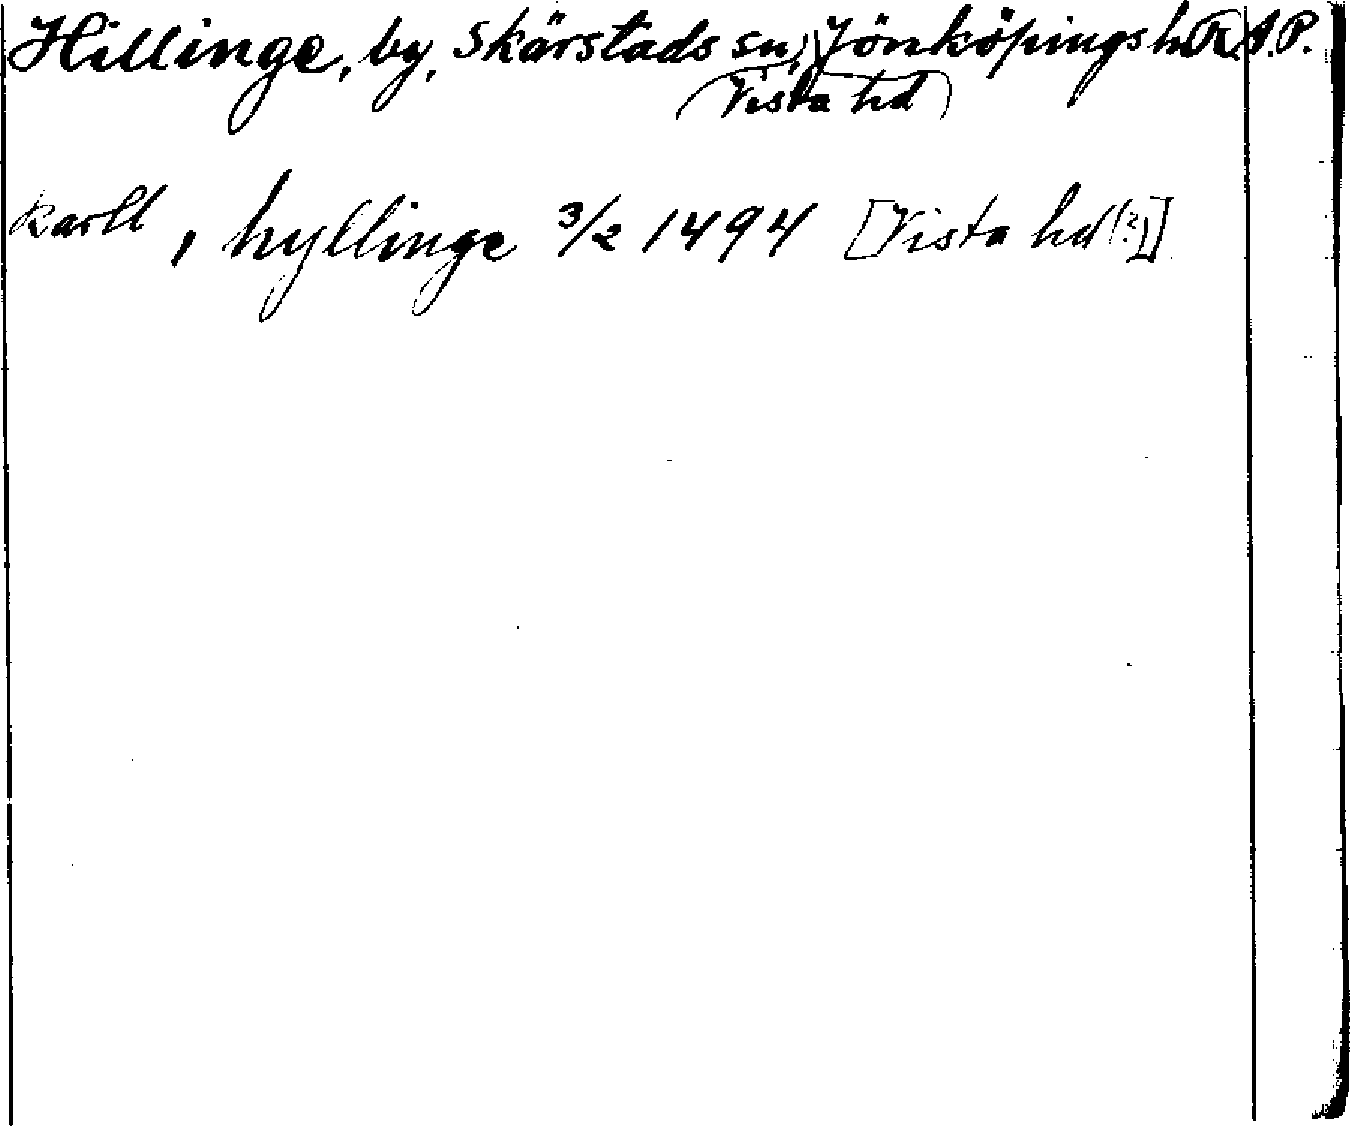 Hillinge, by, Skärstads sn, Jönköpings l. R.A.P.
(Vista hd)
karll, hyllinge 3/2 1494 [Vista hd(?)]